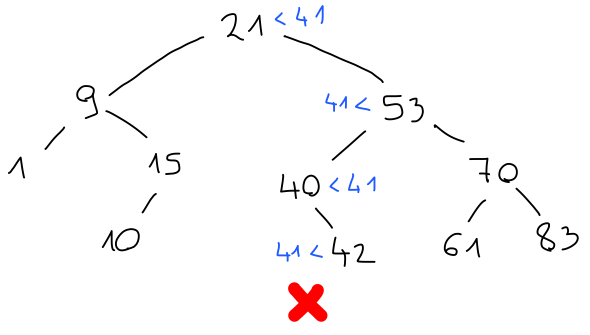 21 < 41
9 41 < 53
1 15 40 < 41 70
10 41 < 42 61 83